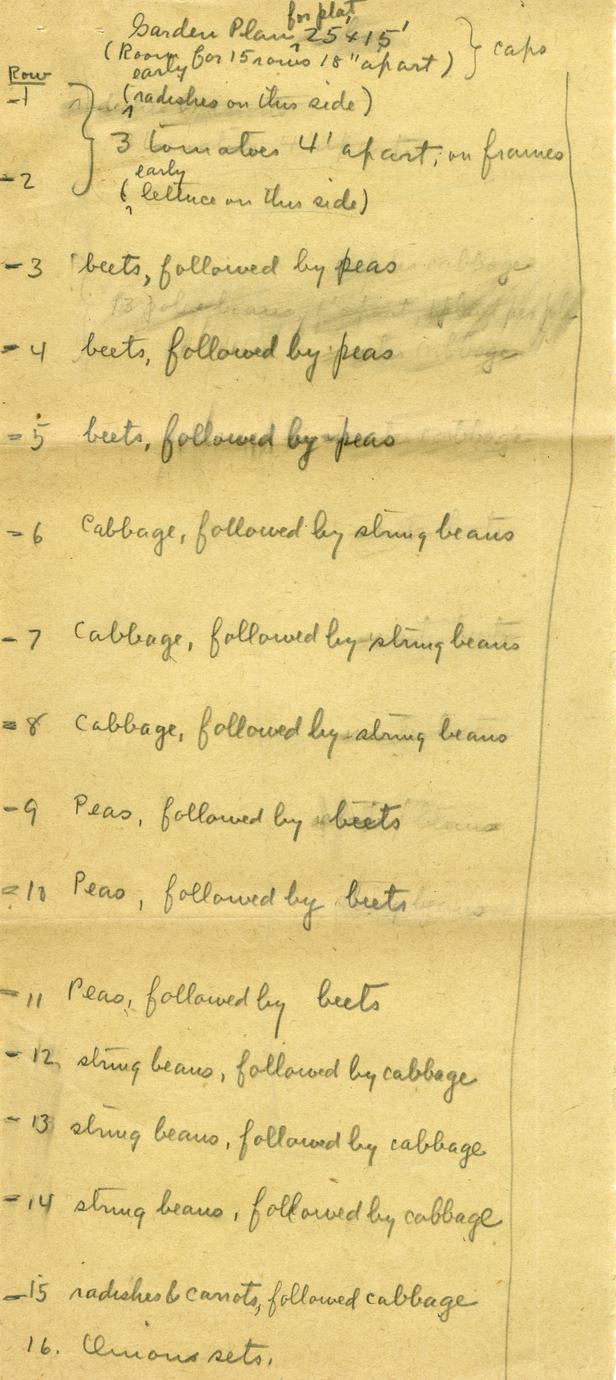 for plat
Garden Plan 25 x 15'
(Room for 15 rows 18" apart) } caps
Row
early
-1 (radishes on this side)
3 tomatoes 4' apart, on frames
early
-2 (lettuce on this side)
-3 beets, followed by peas
-4 beets, followed by peas
-5 beets, followed by peas
-6 Cabbage, followed by string beans
-7 Cabbage, followed by string beans
-8 Cabbage, followed by string beans
-9 Peas, followed by beets
-10 Peas, followed by beets
-11 Peas, followed by beets
-12 string beans, followed by cabbage
-13 string beans, followed by cabbage
-14 string beans, followed by cabbage
-15 radishes & carrots, followed cabbage
16. Onions sets.